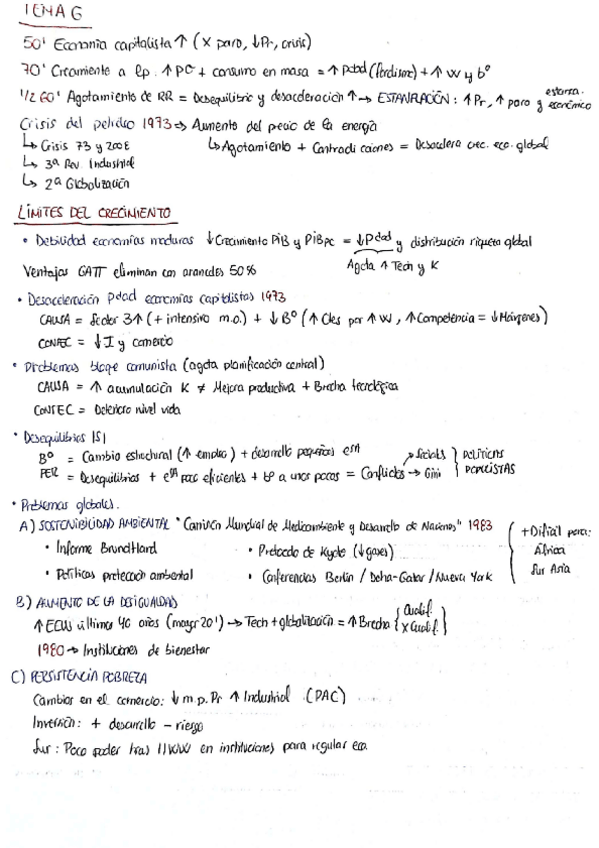 TEMA 6
50' Economía capitalista ↑ (x paro, ↓Pr, crisis)
70' Crecimiento a lp. ↑ PC + consumo en masa = ↑ Pdad (Fordismo) + ↑ W y bº
1/2 60' Agotamiento de RR = Desequilibrio y desaceleración ↑ → ESTANFLACIÓN: ↑ Pr, ↑ paro y económico
Crisis del petróleo 1973 → Aumento del precio de la energía
↳ Crisis 73 y 2008 ↳ Agotamiento + Contradicciones = Desacelera crec. eco. global
↳ 3ª Rev. Industrial
↳ 2ª Globalización
LÍMITES DEL CRECIMIENTO
• Debilidad economías maduras ↓ Crecimiento PIB y PIBpc = ↓ Pdad y distribución riqueza global
Ventajas GATT eliminan con aranceles 50% Agota ↑ Tech y K
• Desaceleración Pdad economías capitalistas 1973
CAUSA = Sector 3↑ (+ intensivo m.o.) + ↓ Bº (↑ Cles por ↑ W, ↑ Competencia = ↓ Márgenes)
CONSEC = ↓ I y comercio
• Problemas bloque comunista (agota planificación central)
CAUSA = ↑ acumulación K ≠ Mejora productiva + Brecha tecnológica
CONSEC = Deterioro nivel vida
• Desequilibrios ISI
Bº = Cambio estructural (↑ empleo) + desarrollo pequeñas
PER = Desequilibrios + poco eficientes + a unos pocos = Conflictos → Sociales → Gini } POLÍTICAS POPULISTAS
• Problemas globales.
A) SOSTENIBILIDAD AMBIENTAL "Comisión Mundial de Medioambiente y Desarrollo de Naciones" 1983
• Informe Brundtland • Protocolo de Kyoto (↓ gases) + Difícil para:
• Políticas protección ambiental • Conferencias Berlín / Doha-Qatar / Nueva York África
Sur Asia
B) AUMENTO DE LA DESIGUALDAD
↑ EEUU últimos 40 años (mayor 20') → Tech + globalización = ↑ Brecha { Cualif. x Cualif. }
1980 → Instituciones de bienestar
C) PERSISTENCIA POBREZA
Cambios en el comercio: ↓ m.p. Pr ↑ Industrial (PAC)
Inversión: + desarrollo − riesgo
Sur: Poco poder tras IIWW en instituciones para regular eco.